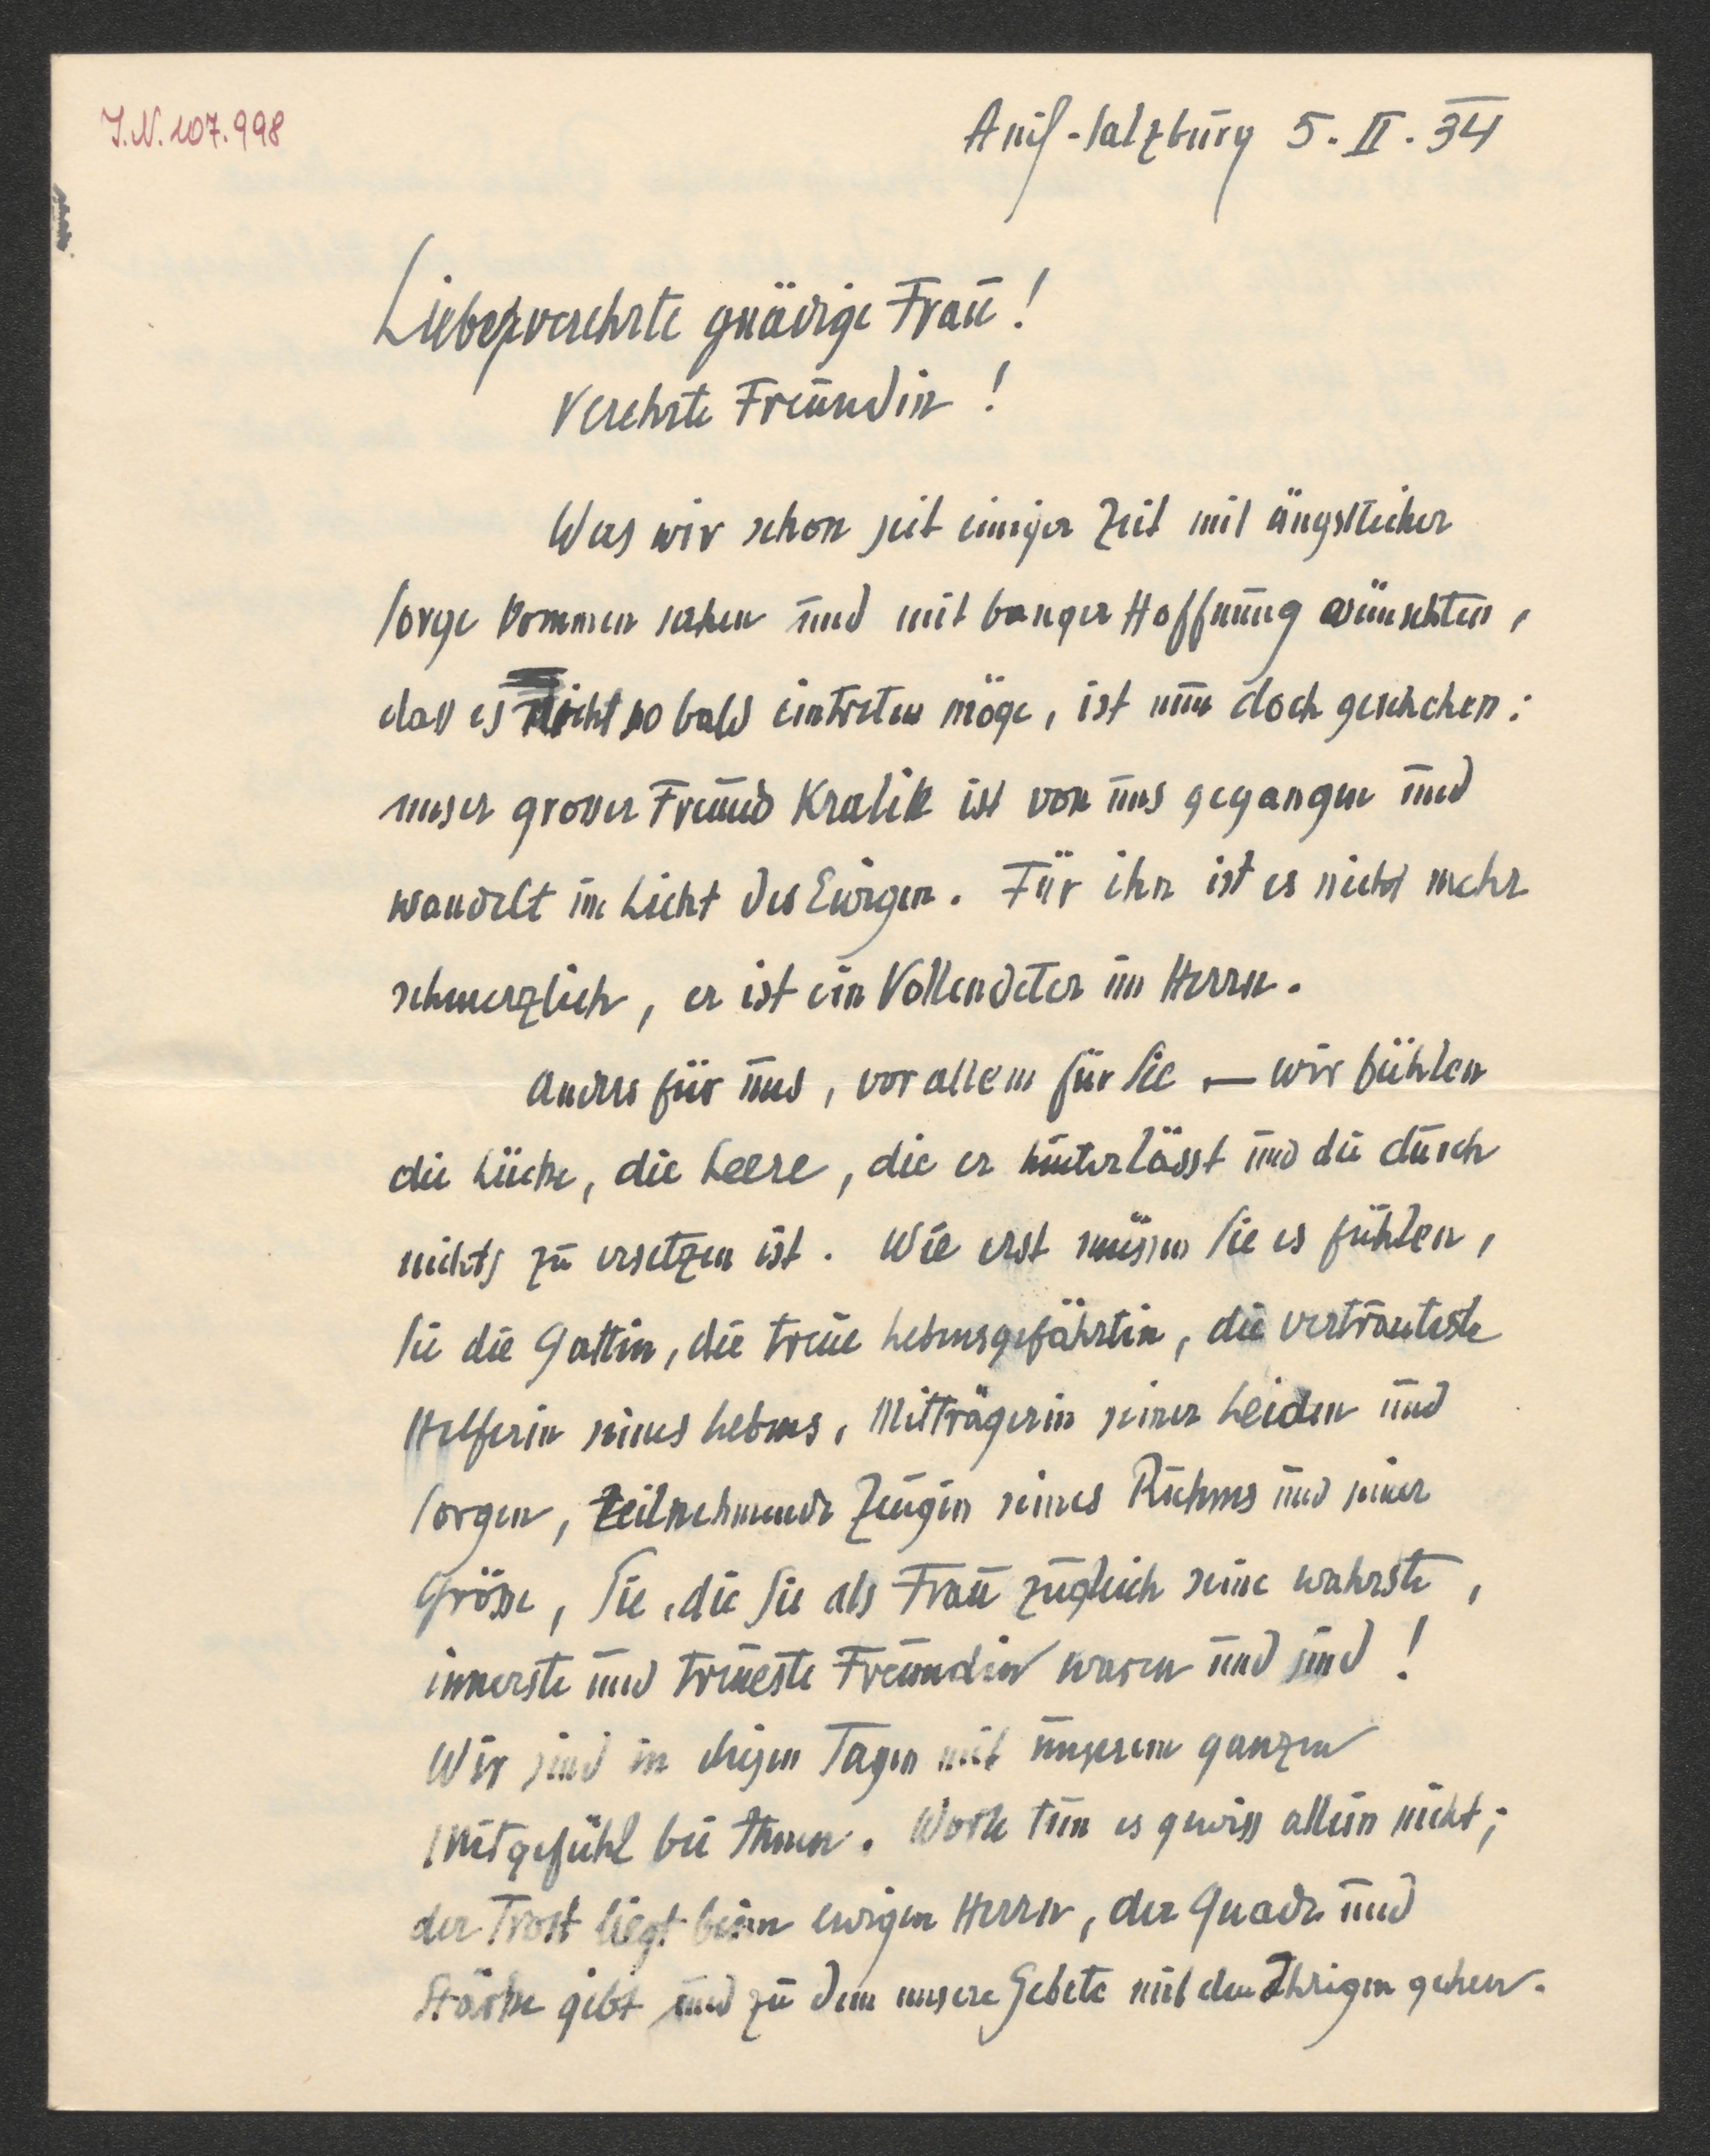 I.N. 107.998
Anif-Salzburg 5. II. 34
Liebe, verehrte gnädige Frau!
Verehrte Freundin!
Was wir schon seit einiger Zeit mit ängstlicher
Sorge kommen sahen und mit banger Hoffnung wünschten,
dass es nicht so bald eintreten möge, ist nun doch geschehen:
unser grosser Freund Kralik ist von uns gegangen und
wandelt im Licht des Ewigen. Für ihn ist es nicht mehr
schmerzlich, er ist ein Vollendeter im Herrn.
Anders für uns, vor allem für Sie — wir fühlen
die Lücke, die Leere, die er hinterlässt und die durch
nichts zu ersetzen ist. Wie erst müssen Sie es fühlen,
Sie die Gattin, die treue Lebensgefährtin, die vertrauteste
Helferin seines Lebens, Mitträgerin seiner Leiden und
Sorgen, teilnehmende Zeugin seines Ruhms und seiner
Grösse, Sie, die Sie als Frau zugleich seine wahrste,
innerste und treueste Freundin waren und sind!
Wir sind in diesen Tagen mit unserem ganzen
Mitgefühl bei Ihnen. Worte tun es gewiss allein nicht;
der Trost liegt beim ewigen Herrn, der Gnade und
Stärke gibt und zu dem unsere Gebete mit den Ihrigen gehen.